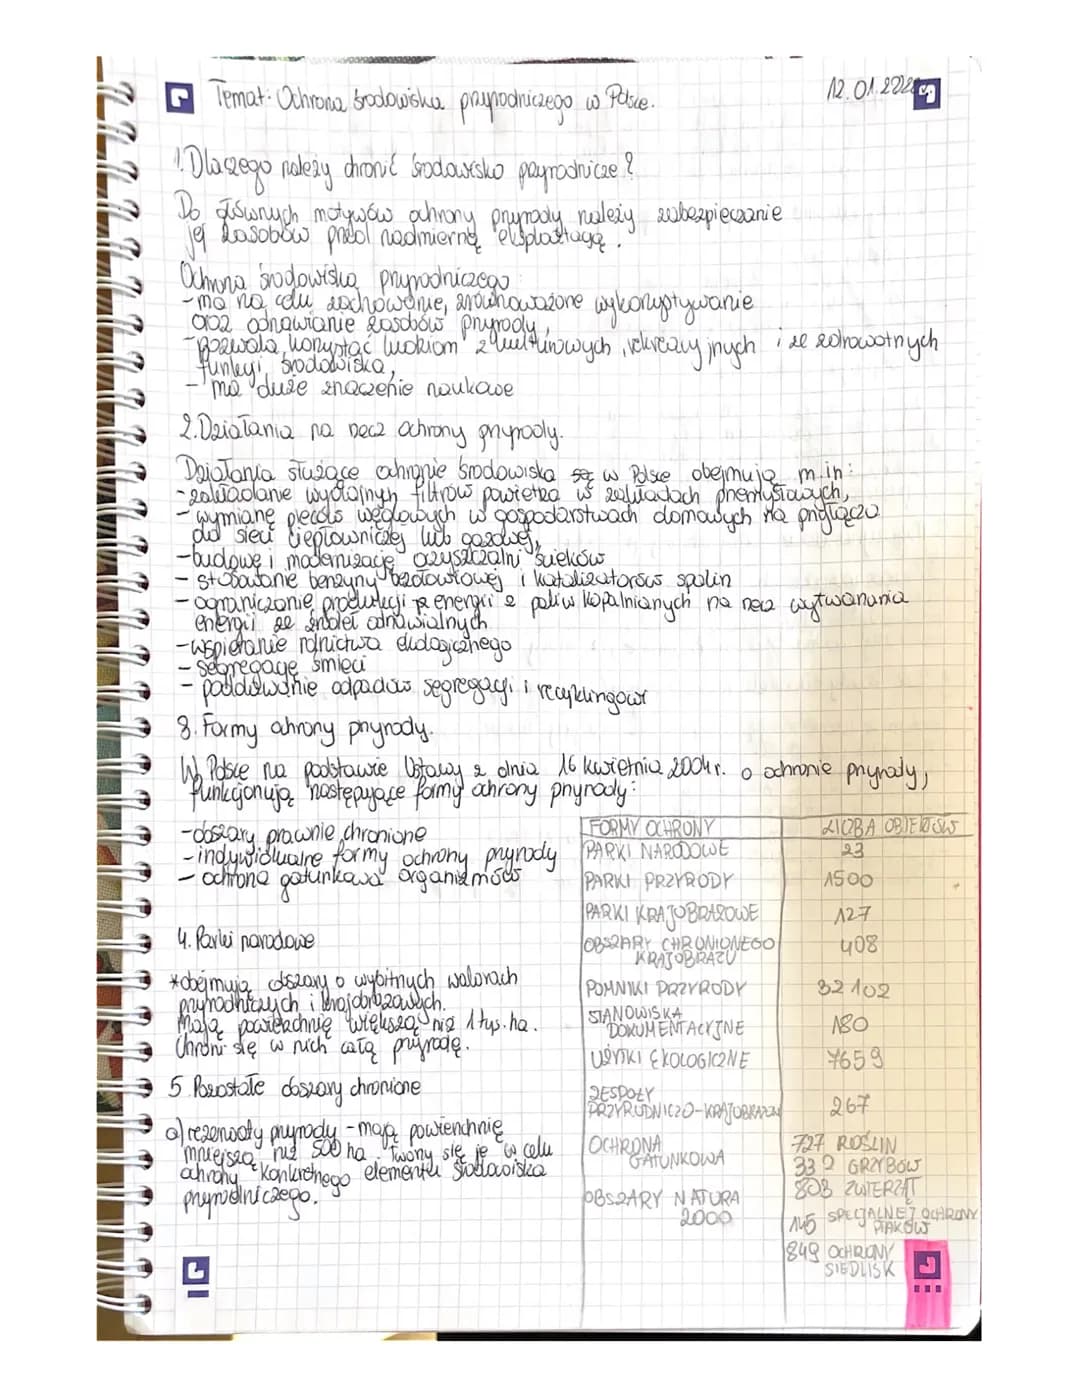 Temat: Ochrona środowiska przyrodniczego w Polsce.
12.01.202
1. Dlaczego należy chronić środowisko przyrodnicze?
Do głównych motywów ochrony przyrody należy zabezpieczanie
jej zasobów przed nadmierną eksploatacją.
Ochrona środowiska przyrodniczego:
- ma na celu zachowanie, zrównoważone wykorzystywanie
oraz odnawianie zasobów przyrody,
- pozwala korzystać ludziom z kulturowych, rekreacyjnych i ze zdrowotnych
funkcji środowiska,
- ma duże znaczenie naukowe
2. Działania na rzecz ochrony przyrody.
Działania służące ochronie środowiska są w Polsce obejmują m.in:
- zakładanie wydajnych filtrów powietrza w zakładach przemysłowych,
- wymianę pieców węglowych w gospodarstwach domowych na przyłącza
do sieci ciepłowniczej lub gazowej,
- budowę i modernizację oczyszczalni ścieków
- stosowanie benzyny bezołowiowej i katalizatorów spalin
- ograniczanie produkcji energii z paliw kopalnianych na rzecz wytwarzania
energii ze źródeł odnawialnych
- wspieranie rolnictwa ekologicznego
- segregację śmieci
- poddawanie odpadów segregacji i recyklingowi
3. Formy ochrony przyrody.
W Polsce na podstawie Ustawy z dnia 16 kwietnia 2004r. o ochronie przyrody,
funkcjonują następujące formy ochrony przyrody:
- obszary prawnie chronione
- indywidualne formy ochrony przyrody
- ochrona gatunkowa organizmów
4. Parki narodowe
*obejmują obszary o wybitnych walorach
przyrodniczych i krajobrazowych.
Mają powierzchnię większą niż 1 tys. ha.
Chroni się w nich całą przyrodę.
5. Pozostałe obszary chronione
a) rezerwaty przyrody - mają powierzchnię
mniejszą niż 500 ha. Tworzy się je w celu
ochrony konkretnego elementu środowiska
przyrodniczego.
FORMY OCHRONY LICZBA OBIEKTÓW
PARKI NARODOWE 23
PARKI PRZYRODY 1500
PARKI KRAJOBRAZOWE 127
OBSZARY CHRONIONEGO
KRAJOBRAZU 408
POMNIKI PRZYRODY 32 102
STANOWISKA
DOKUMENTACYJNE 180
UŻYTKI EKOLOGICZNE 7659
ZESPOŁY
PRZYRODNICZO-KRAJOBRAZOW 267
OCHRONA
GATUNKOWA
727 ROŚLIN
332 GRZYBÓW
803 ZWIERZĄT
OBSZARY NATURA
2000
145 SPECJALNEJ OCHRONY
PTAKÓW
849 OCHRONY
SIEDLISK